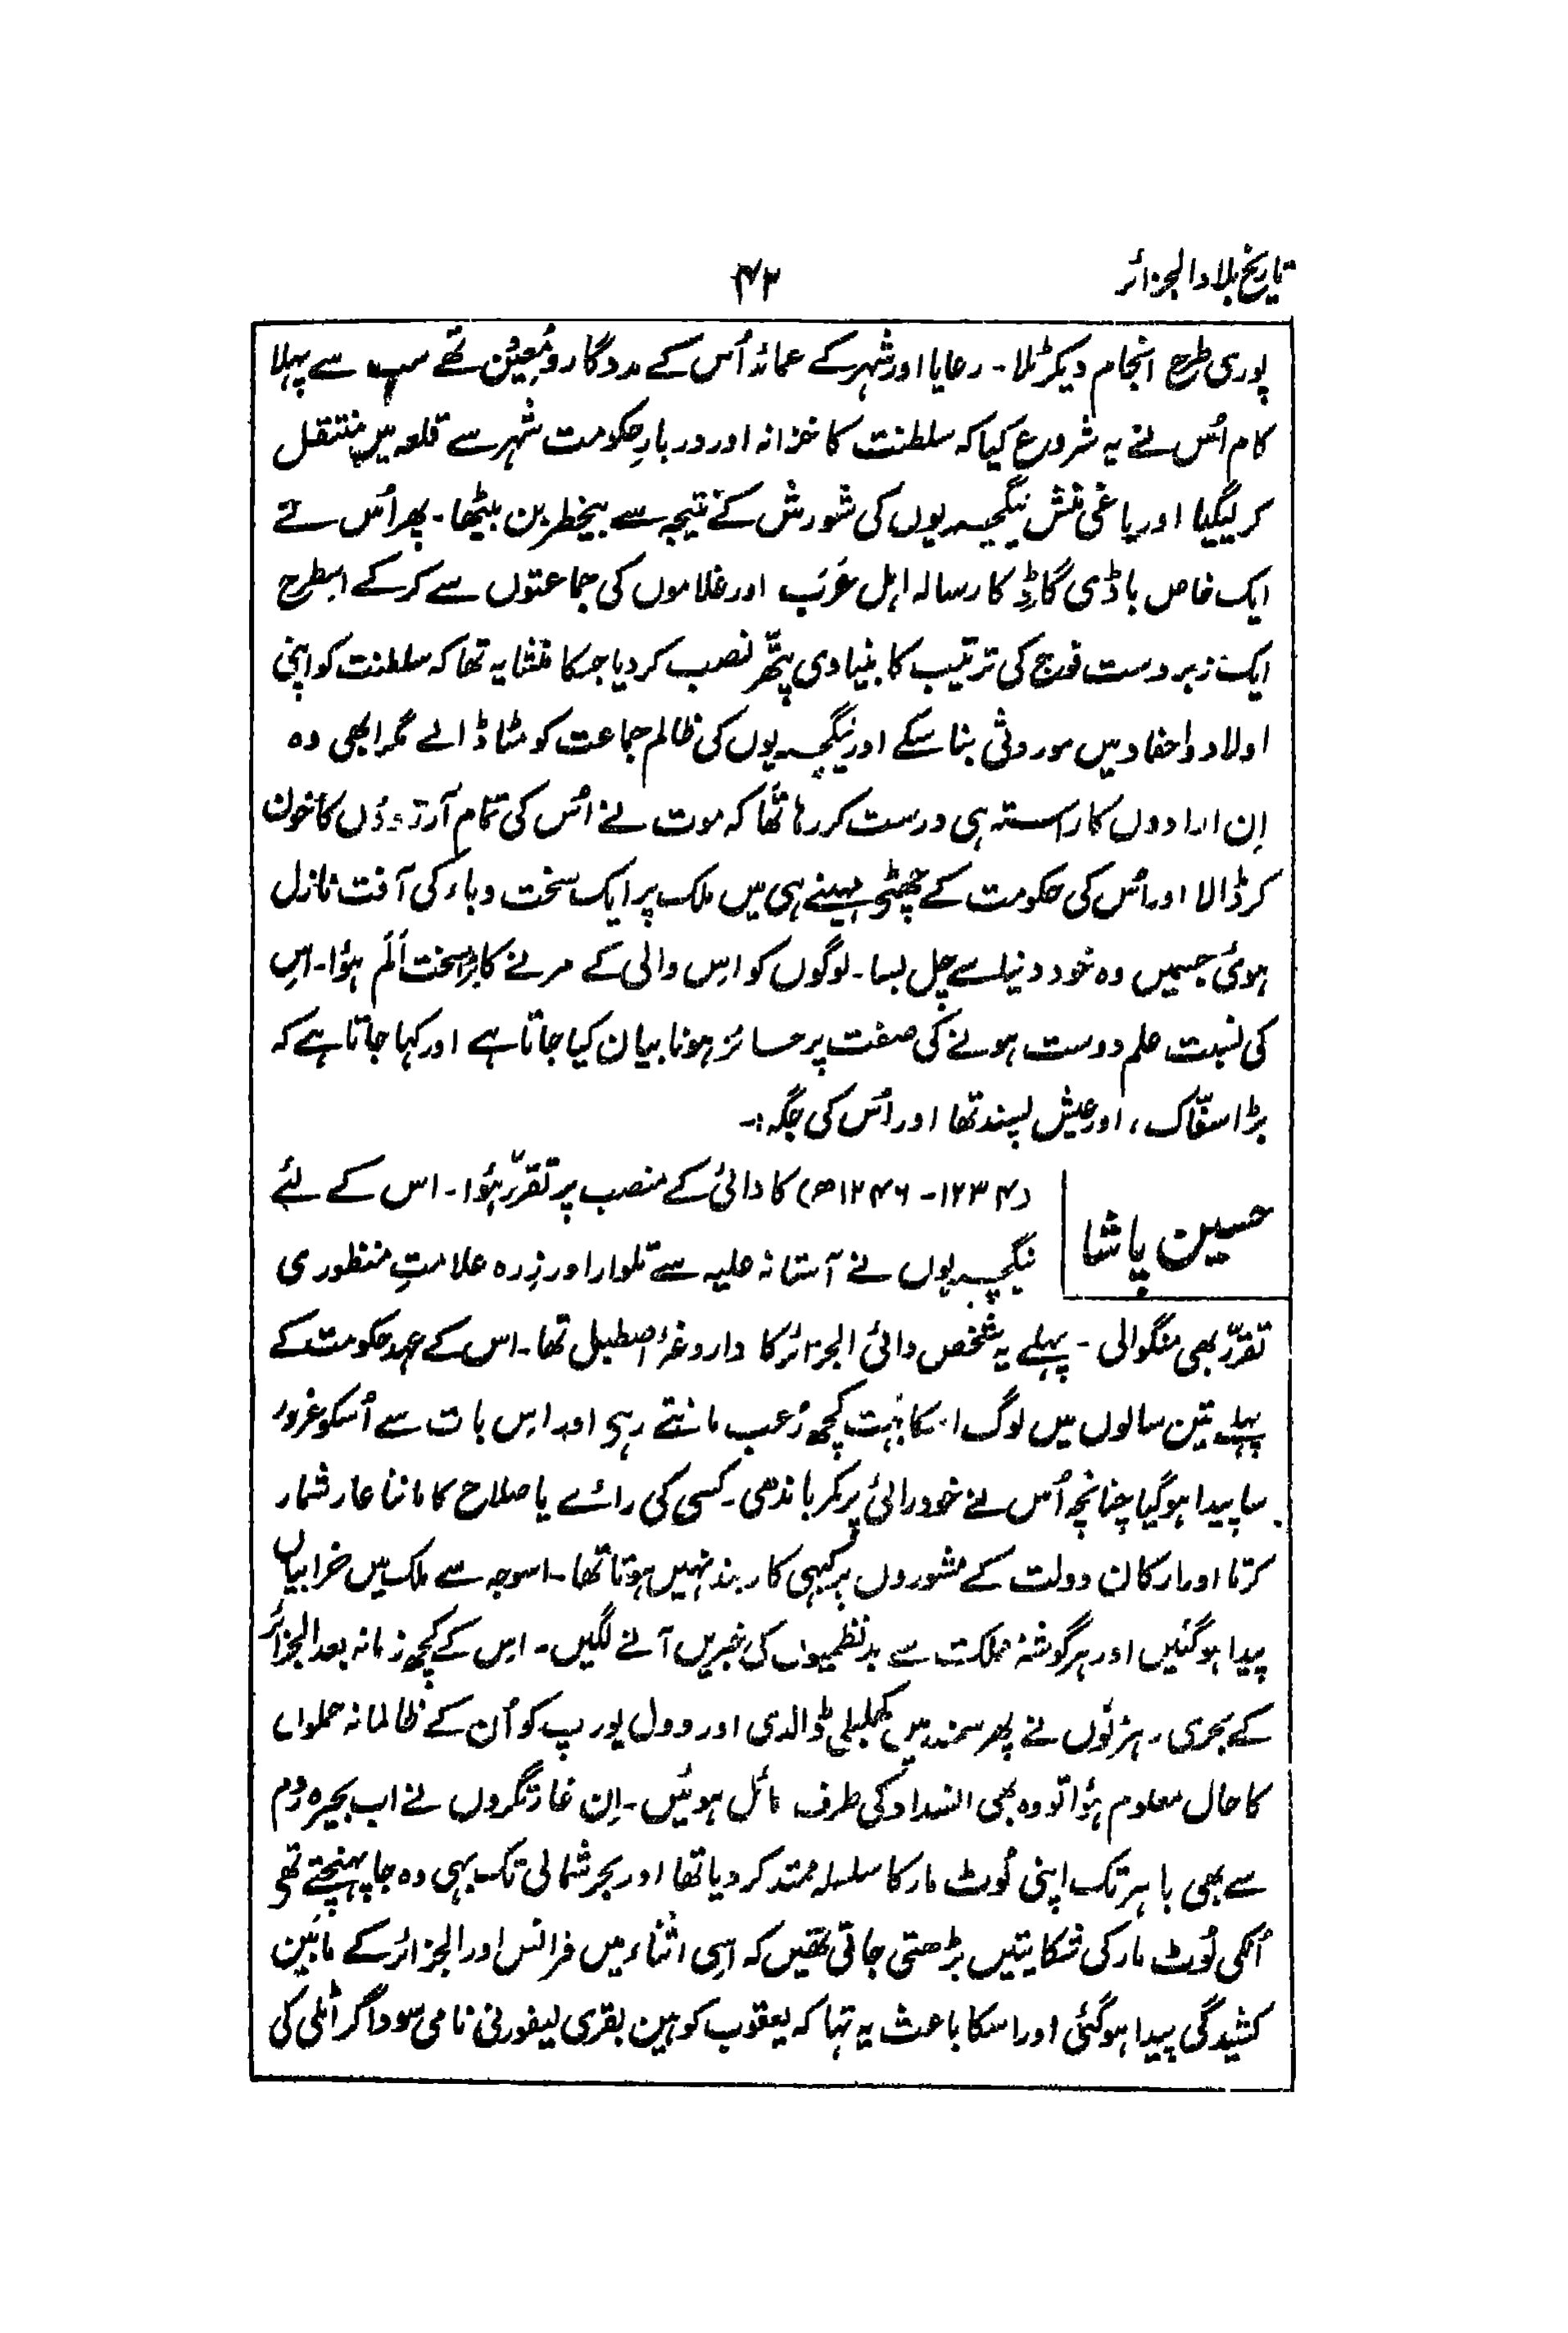 تاریخ بلاد الجزائر
۴۳
پوری طرح انجام دیکر ٹلا۔ رعایا اور شہر کے عمائد اُس کے مددگار و مُعِیْن تھے سب سے پہلا
کام اُس نے یہ شروع کیا کہ سلطنت کا خزانہ اور دربارِ حکومت شہر سے قلعہ میں منتقل
کر لیگیا اور باغی منش ینگچریوں کی شورش کے نتیجہ سے بیخطر بن بیٹھا۔ پھر اُس نے
ایک خاص باڈی گاڈ کا رسالہ اہل عَرَب اور غلاموں کی جماعتوں سے کر کے اسطرح
ایک زبردست فوج کی ترتیب کا بنیادی پتّھر نصب کر دیا جسکا منشا یہ تھا کہ سلطنت کو اپنی
اولاد و احفاد میں موروثی بنا سکے اور ینگچریوں کی ظالم جماعت کو مٹا ڈالے مگر ابھی وہ
اِن ارادوں کا راستہ ہی درست کر رہا تھا کہ موت نے اُس کی تمام آرزوؤں کا خون
کر ڈالا اور اُس کی حکومت کے چھٹے مہینے ہی میں ملک پر ایک سخت وباء کی آفت نازل
ہوئی جسمیں وہ خود دنیا سے چل بسا۔ لوگوں کو اِس والی کے مرنے کا بڑا سخت اَلَم ہؤا۔ اِس
کی نسبت علم دوست ہونے کی صفت پر حسائز ہونا بیان کیا جاتا ہے اور کہا جاتا ہے کہ
بڑا سفّاک، اور عیش پسند تھا اور اُس کی جگہ:۔
حسین پاشا
(۱۲۳۴۔ ۱۲۴۶ھ) کا دائی کے منصب پر تقرّر ہؤا۔ اس کے لئے
ینگچریوں نے آستانہ علیہ سے تلوار اور زِرہ علامتِ منظوری
تقرّر بھی منگوالی۔ پہلے یہ شخص دائی الجزائر کا داروغۂ اصطبل تھا۔ اس کے عہد حکومت کے
پہلے تین سالوں میں لوگ اسکا بہت کچھ رُعب مانتے رہی اور اِس بات سے اُسکو غرور
سا پیدا ہو گیا چنانچہ اُس نے خود رائی پر کمر باندھی۔ کسی کی رائے یا صلاح کا ماننا عار شمار
کرتا اور ارکان دولت کے مشوروں پر کبہی کاربند نہیں ہوتا تھا۔ اسوجہ سے ملک میں خرابیاں
پیدا ہو گئیں اور ہر گوشۂ مملکت سے بدنظمیوں کی خبریں آنے لگیں۔ اِس کے کچھ زمانہ بعد الجزائر
کے بحری رہزنوں نے پھر سمندر میں کھلبلی ڈالدی اور دول یورپ کو اُن کے ظالمانہ حملوں
کا حال معلوم ہؤا تو وہ بھی انسداد کی طرف مائل ہوئیں۔ اِن غارتگروں نے اب بحیرہ رُوم
سے بھی باہر تک اپنی لُوٹ مار کا سلسلہ ممتد کر دیا تھا اور بحر شمالی تک بہی وہ جا پہنچتے تھی
اُنکی لُوٹ مار کی شکایتیں بڑھتی جاتی تھیں کہ اِسی اثناء میں فرانس اور الجزائر کے مابَیْن
کشیدگی پیدا ہو گئی اور اسکا باعث یہ تہا کہ یعقوب کوہین بقری لیفورنی نامی سوداگر اٹلی کی